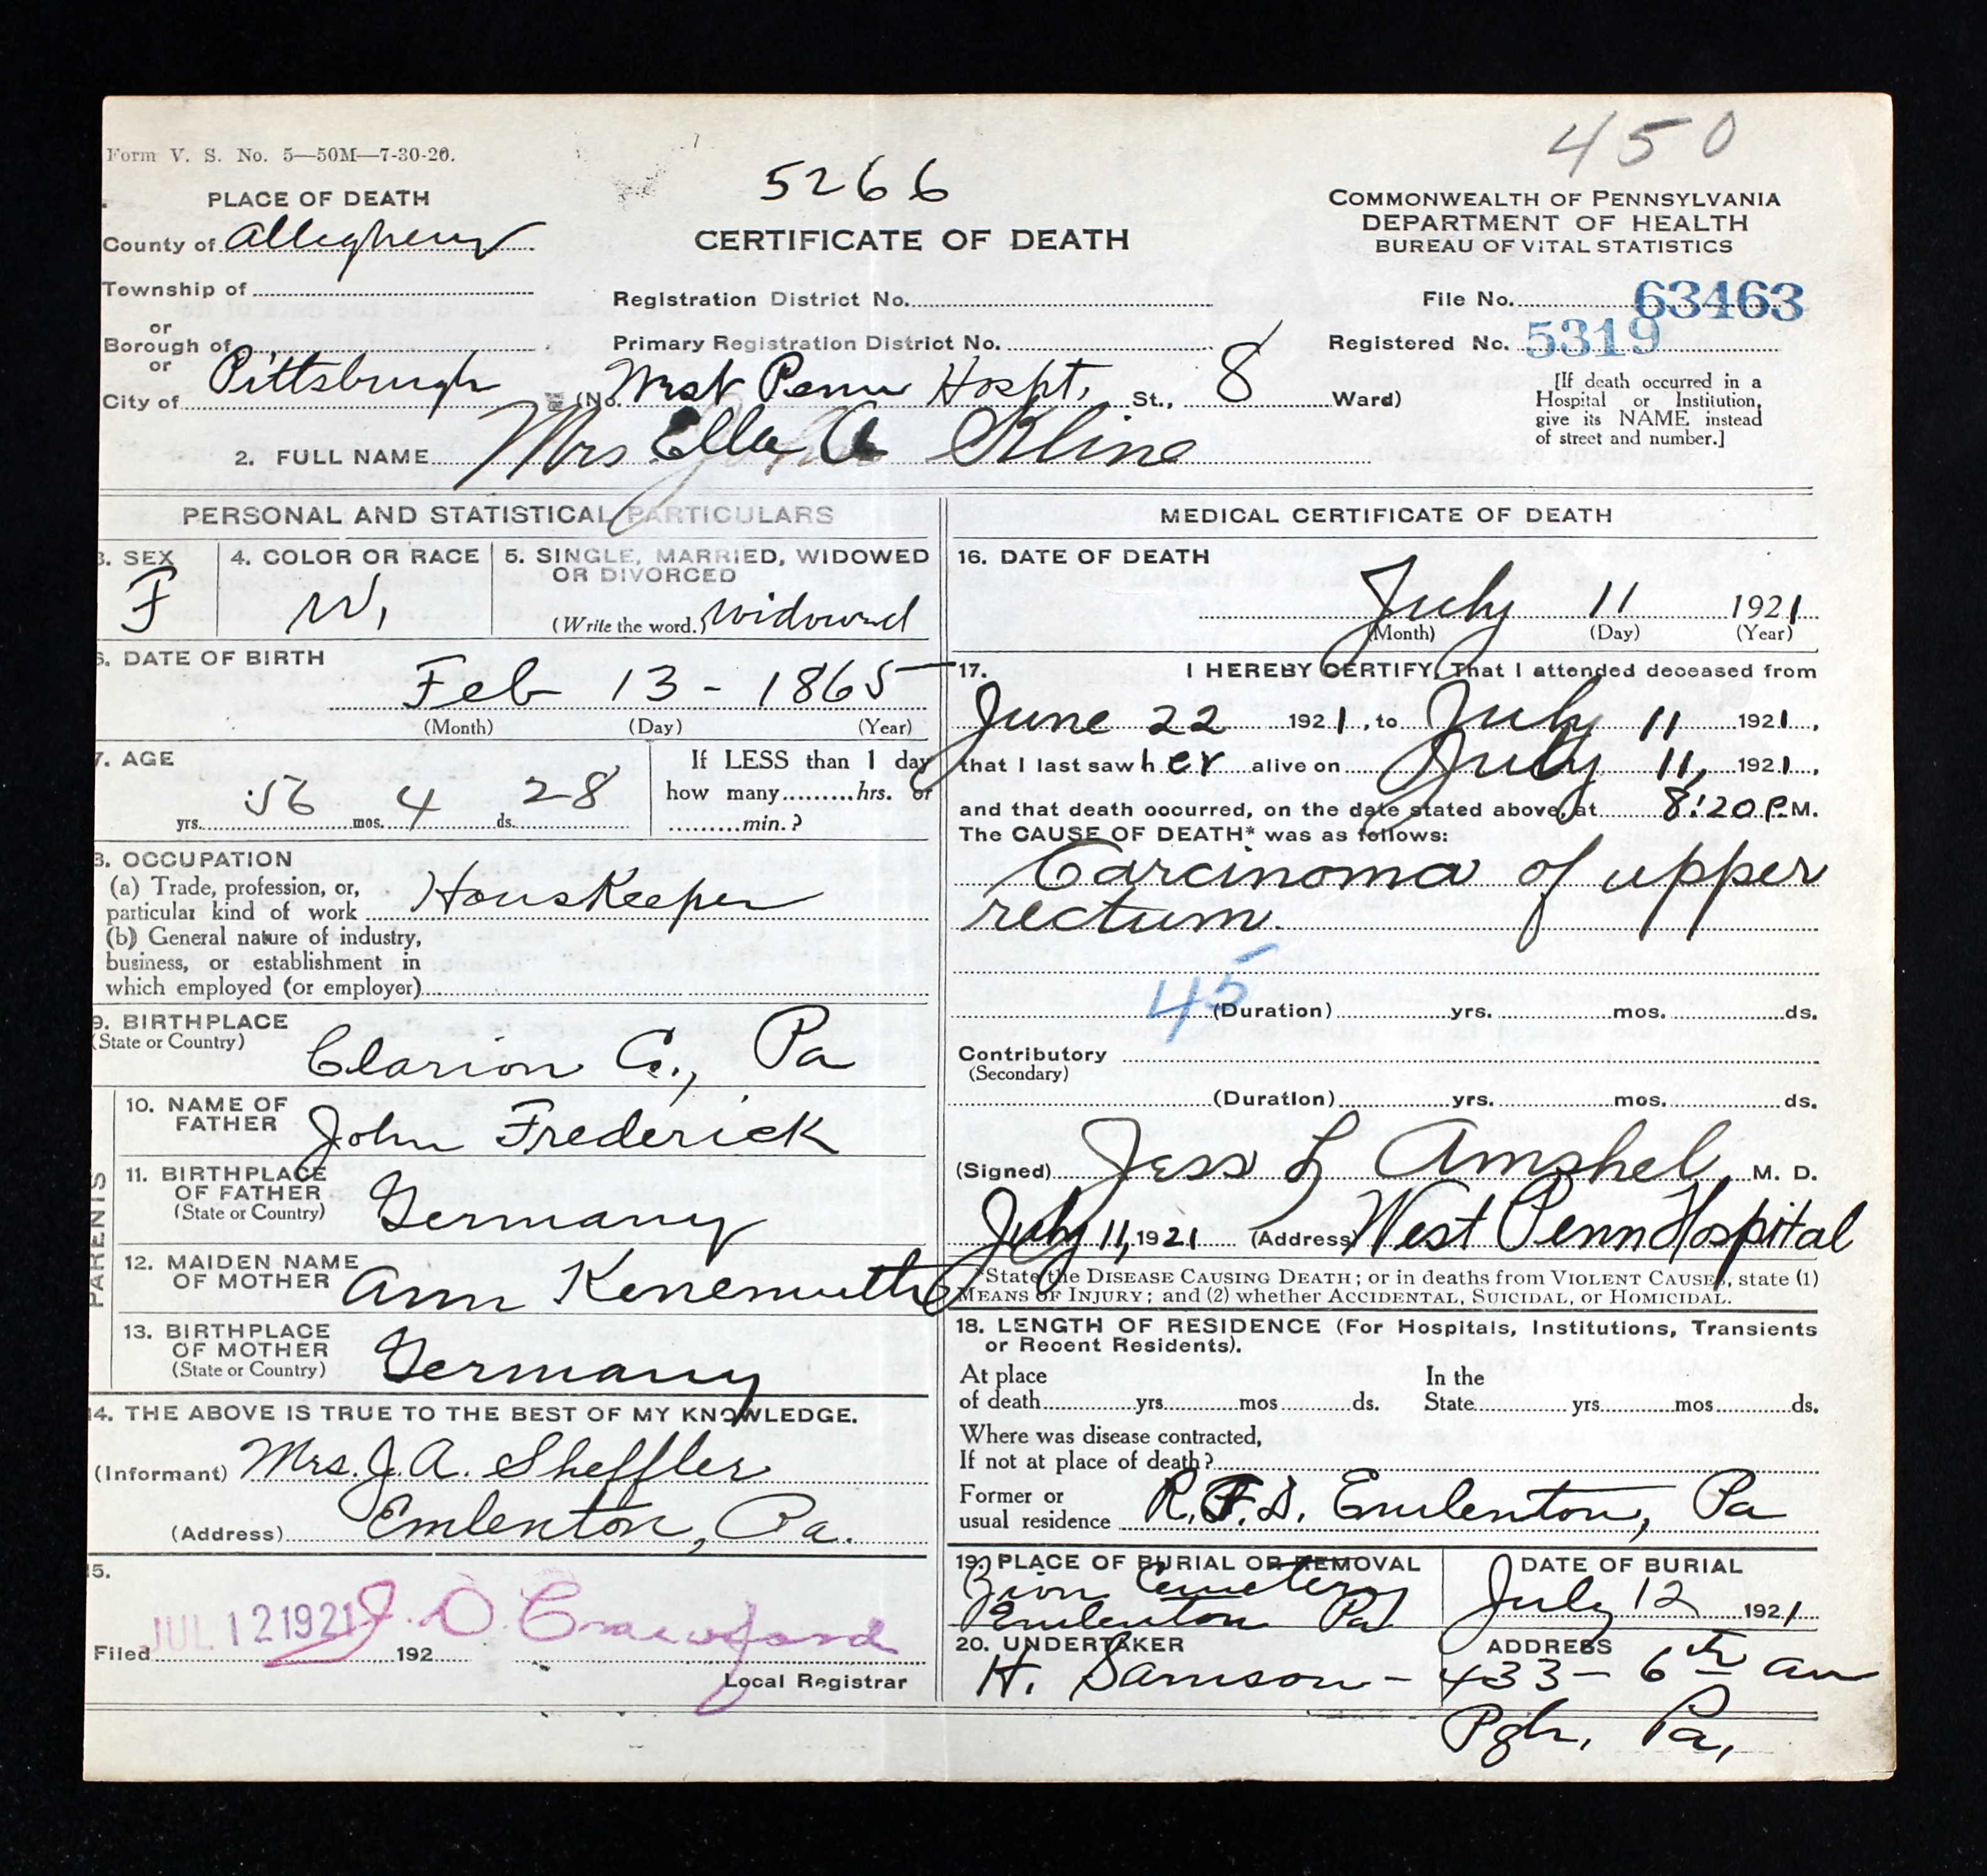 Form V. S. No. 5—50M—7-30-20.
450
5266
PLACE OF DEATH
County of Allegheny
CERTIFICATE OF DEATH
COMMONWEALTH OF PENNSYLVANIA
DEPARTMENT OF HEALTH
BUREAU OF VITAL STATISTICS
Township of
or
Borough of
or
City of Pittsburgh
Registration District No.
Primary Registration District No.
(No. West Penn Hospt, St., 8 Ward)
File No. 63463
Registered No. 5319
[If death occurred in a
Hospital or Institution,
give its NAME instead
of street and number.]
2. FULL NAME Mrs Ella A Kline
PERSONAL AND STATISTICAL PARTICULARS
3. SEX
F
4. COLOR OR RACE
W,
5. SINGLE, MARRIED, WIDOWED
OR DIVORCED
(Write the word.) Widowed
6. DATE OF BIRTH
Feb 13 - 1865
(Month) (Day) (Year)
7. AGE
56 yrs. 4 mos. 28 ds.
If LESS than 1 day
how many hrs. or
min.?
8. OCCUPATION
(a) Trade, profession, or,
particular kind of work Houskeeper
(b) General nature of industry,
business, or establishment in
which employed (or employer)
9. BIRTHPLACE
(State or Country)
Clarion Co., Pa
PARENTS
10. NAME OF
FATHER John Frederick
11. BIRTHPLACE
OF FATHER
(State or Country) Germany
12. MAIDEN NAME
OF MOTHER Ann Kenemuth
13. BIRTHPLACE
OF MOTHER
(State or Country) Germany
14. THE ABOVE IS TRUE TO THE BEST OF MY KNOWLEDGE.
(Informant) Mrs. J. A. Sheffler
(Address) Emlenton, Pa.
15.
Filed JUL 12 1921 192 J. O. Crawford
Local Registrar
MEDICAL CERTIFICATE OF DEATH
16. DATE OF DEATH
July 11 1921
(Month) (Day) (Year)
17. I HEREBY CERTIFY, That I attended deceased from
June 22 1921, to July 11 1921,
that I last saw her alive on July 11, 1921,
and that death occurred, on the date stated above, at 8:20 P.M.
The CAUSE OF DEATH* was as follows:
Carcinoma of upper
rectum.
45
(Duration) yrs. mos. ds.
Contributory
(Secondary)
(Duration) yrs. mos. ds.
(Signed) Jess L Amshel, M. D.
July 11, 1921 (Address) West Penn Hospital
*State the DISEASE CAUSING DEATH; or in deaths from VIOLENT CAUSES, state (1)
MEANS OF INJURY; and (2) whether ACCIDENTAL, SUICIDAL, or HOMICIDAL.
18. LENGTH OF RESIDENCE (For Hospitals, Institutions, Transients
or Recent Residents).
At place
of death yrs. mos ds.
In the
State yrs. mos ds.
Where was disease contracted,
If not at place of death?
Former or
usual residence R.F.D. Emlenton, Pa
19. PLACE OF BURIAL OR REMOVAL
Zion Cemetery
Emlenton Pa
DATE OF BURIAL
July 12 1921
20. UNDERTAKER
H. Samson -
ADDRESS
433 - 6th av
Pgh, Pa,